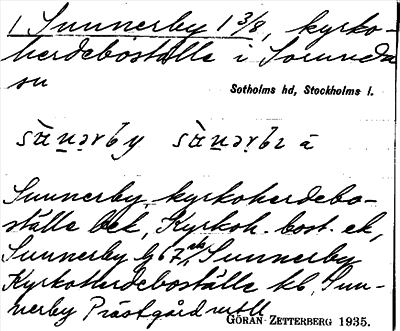 1 Sunnerby 1 3/8, kyrko-
herdeboställe i Sorunda
sn
Sotholms hd, Stockholms l.
Sunnerby kyrkoherdebo-
ställe bek, Kyrkoh. bost. ek,
Sunnerby Kyrkoherdeboställe kb, Sun-
nerby Prästgård
GÖRAN ZETTERBERG 1935.